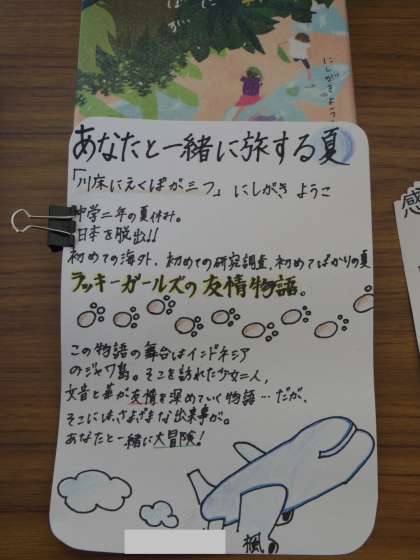 にしがきようこ
あなたと一緒に旅する夏
「川床にえくぼが三つ」にしがき ようこ
中学二年の夏休み。
日本を脱出!!
初めての海外、初めての研究調査、初めてばかりの夏
ラッキーガールズの友情物語。
この物語の舞台はインドネシア
のジャワ島。そこを訪れた少女二人、
文音と華が友情を深めていく物語…だが、
そこにはさまざまな出来事が。
あなたと一緒に大冒険!
楓
感